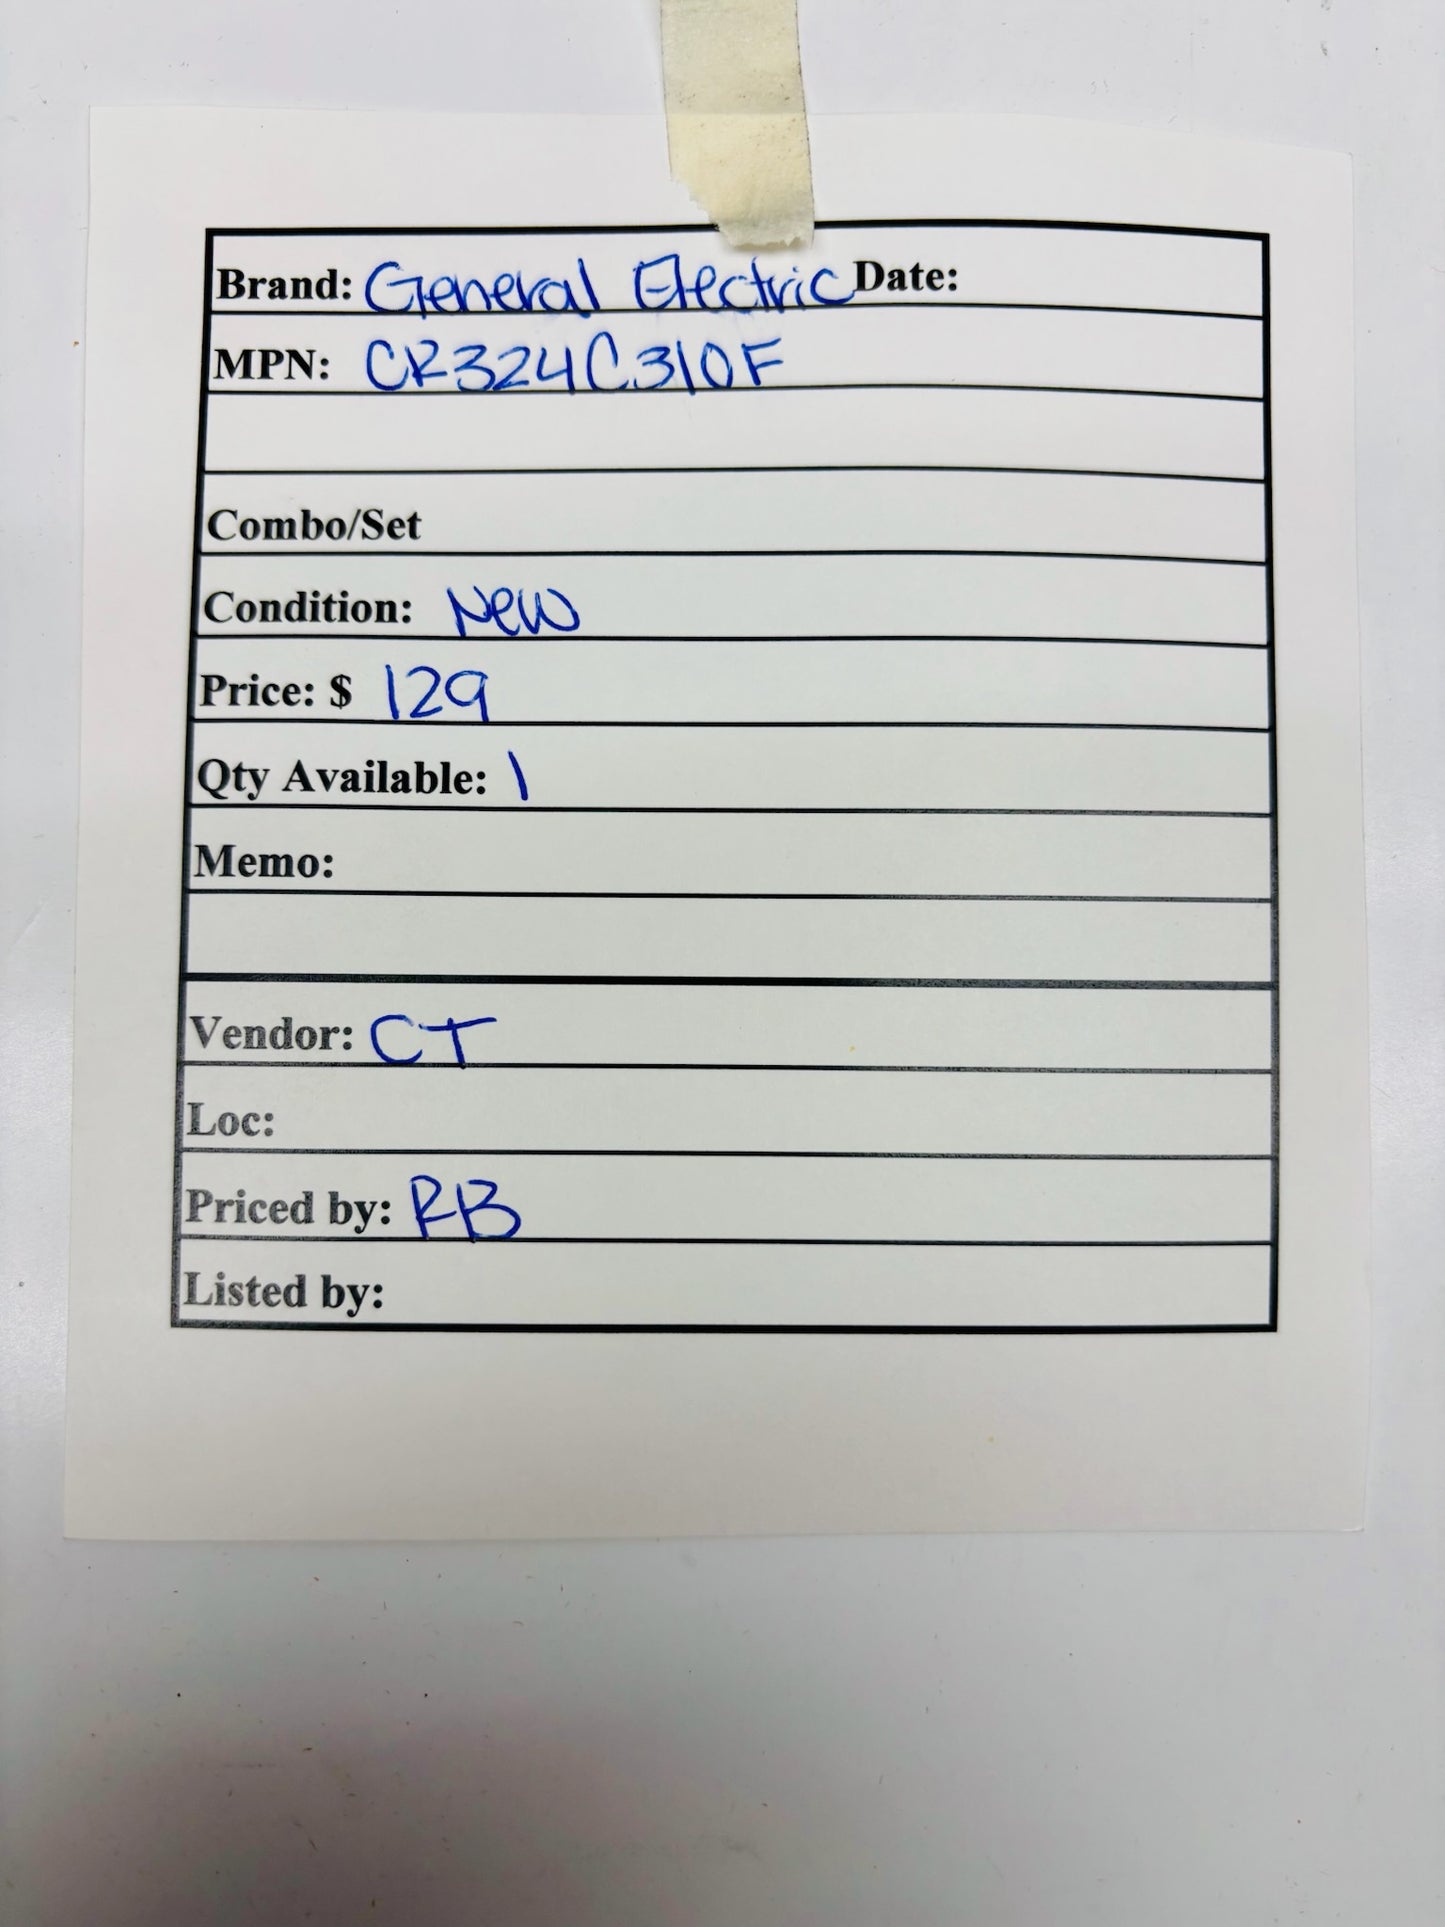 Brand: General Electric Date:
MPN: CR324C310F
Combo/Set
Condition: New
Price: $ 129
Qty Available: 1
Memo:
Vendor: CT
Loc:
Priced by: RB
Listed by: